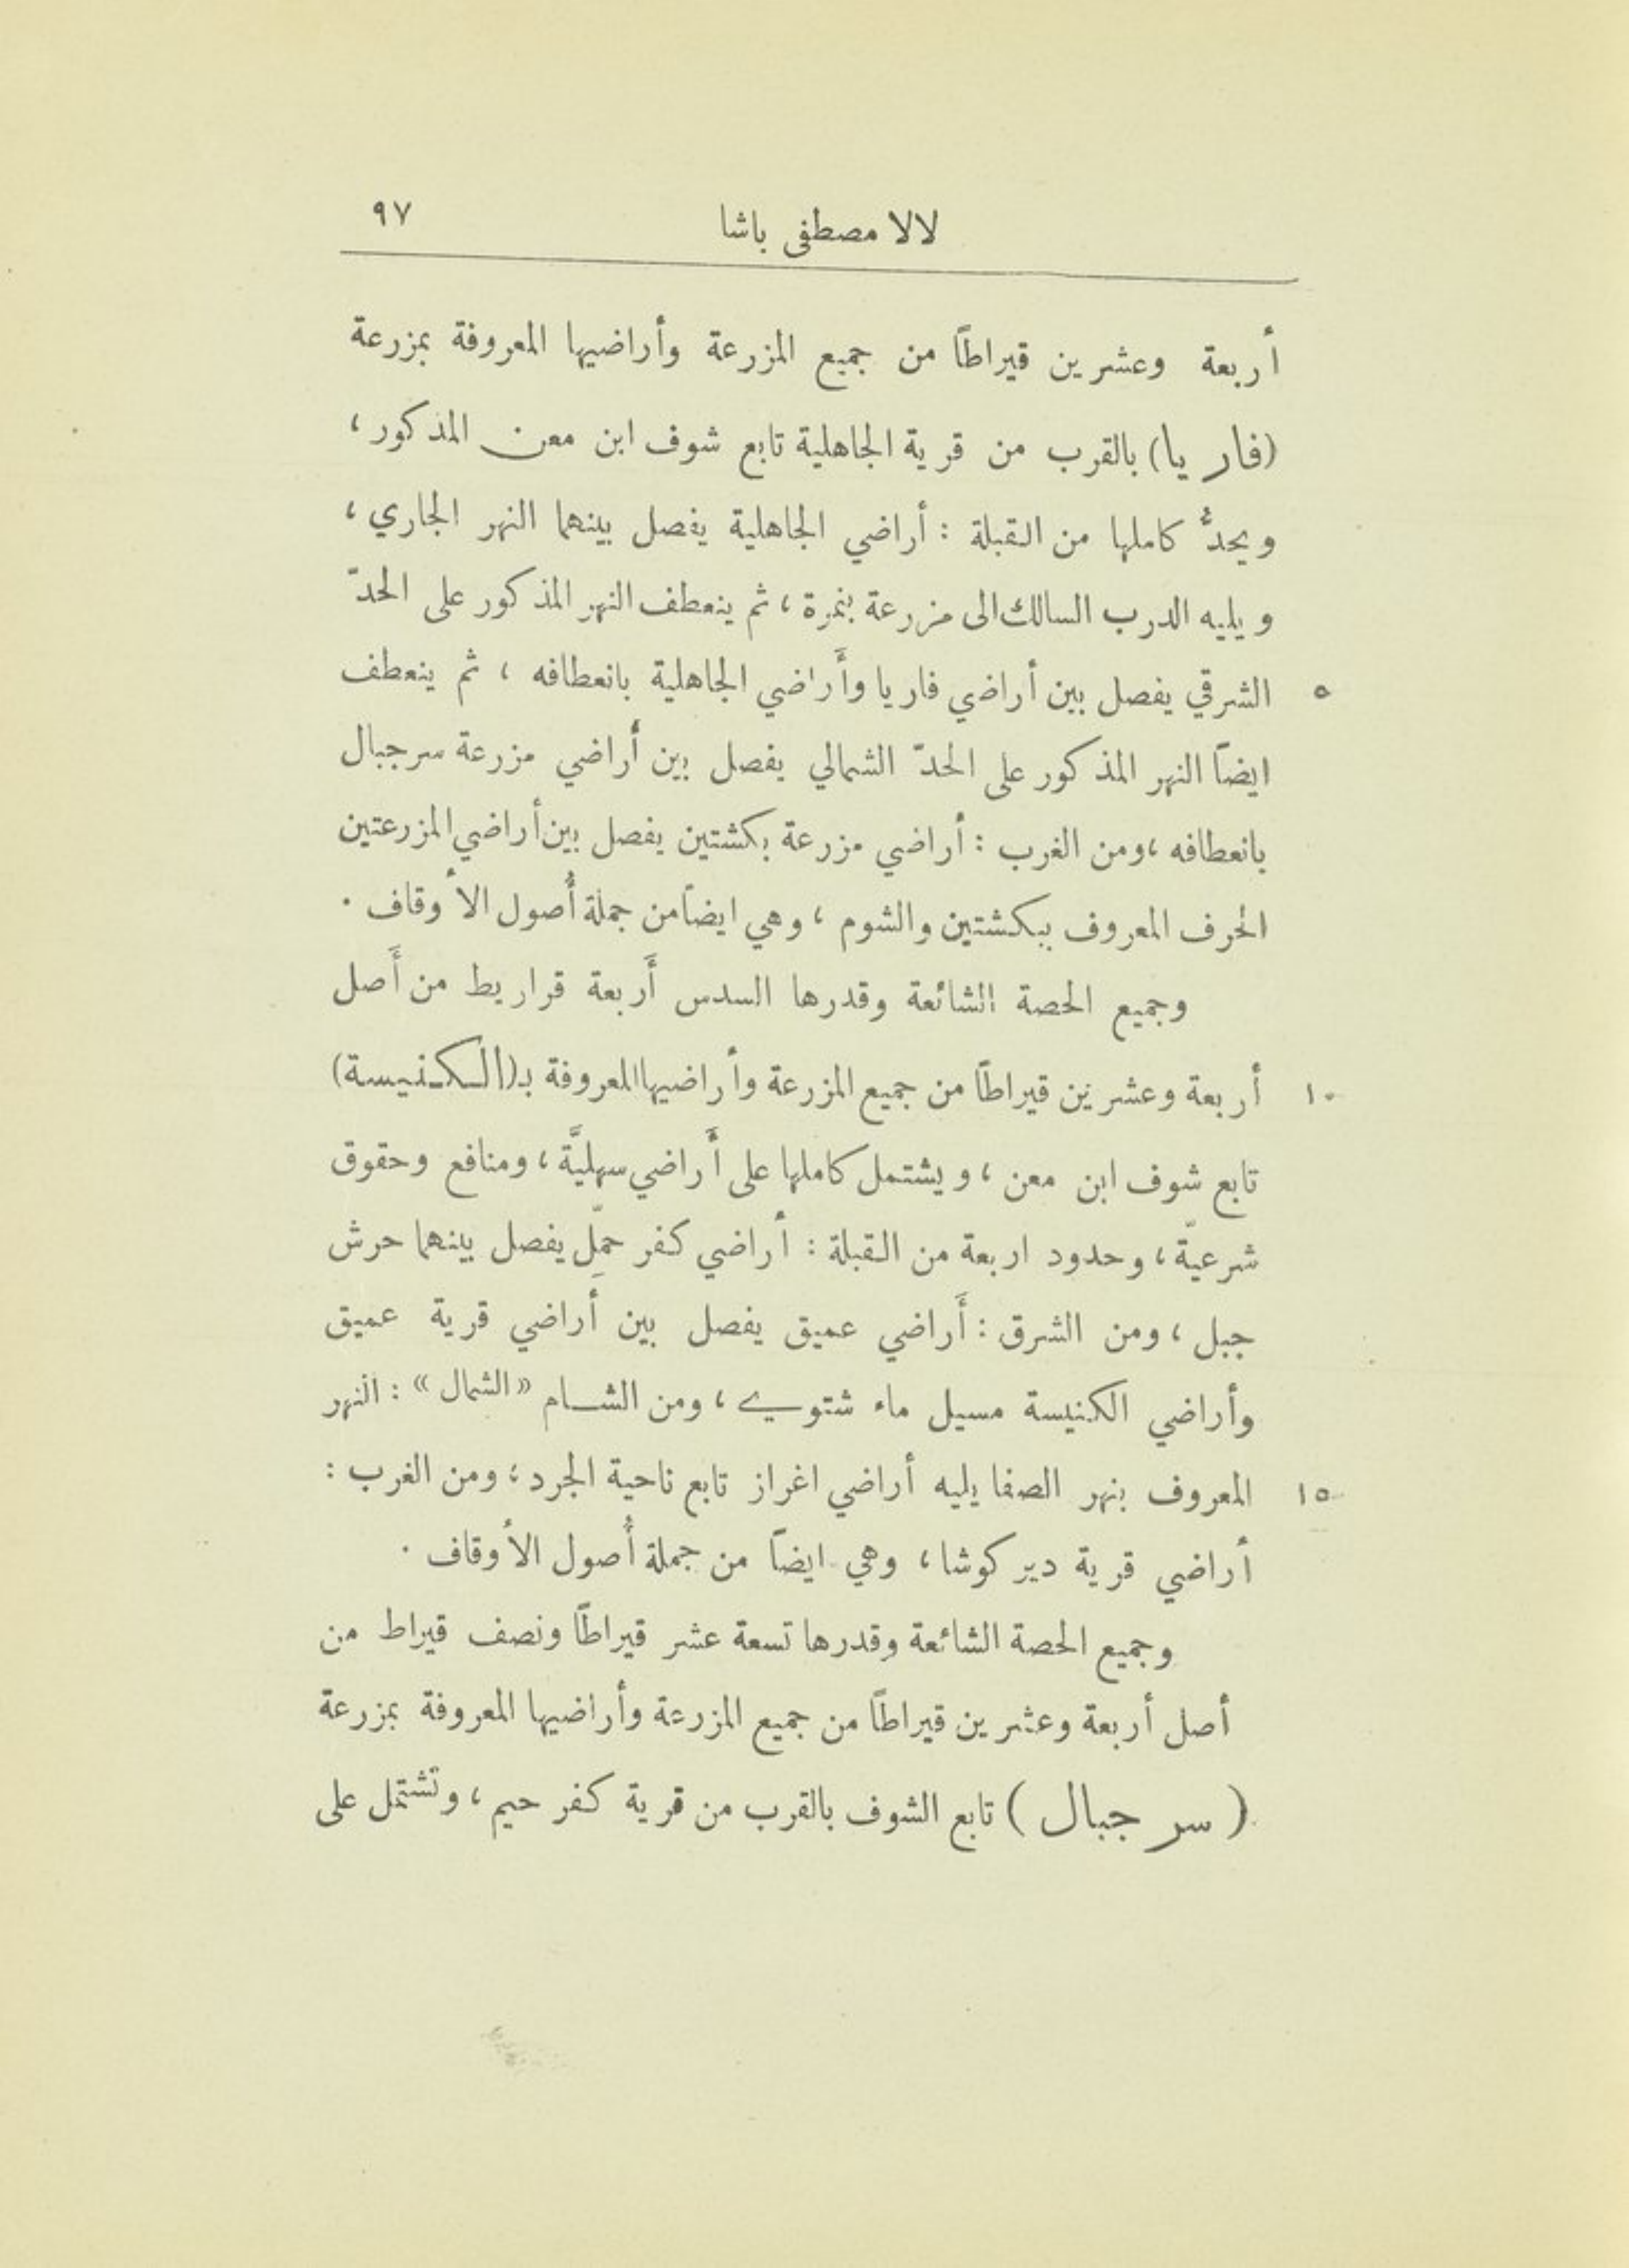 لالا مصطفى باشا ٩٧
أربعة وعشرين قيراطاً من جميع المزرعة وأراضيها المعروفة بمزرعة
(فاريا) بالقرب من قرية الجاهلية تابع شوف ابن معن المذكور،
ويحدُّ كاملها من القبلة : أراضي الجاهلية يفصل بينهما النهر الجاري،
ويليه الدرب السالك الى مزرعة بنمرة، ثم ينعطف النهر المذكور على الحدّ
٥ الشرقي يفصل بين أراضي فاريا وأَراضي الجاهلية بانعطافه، ثم ينعطف
ايضاً النهر المذكور على الحدّ الشمالي يفصل بين أراضي مزرعة سرجبال
بانعطافه، ومن الغرب : أراضي مزرعة بكشتين يفصل بين أراضي المزرعتين
الحرف المعروف ببكشتين والشوم، وهي ايضاً من جملة أُصول الأوقاف .
وجميع الحصة الشائعة وقدرها السدس أَربعة قراريط من أَصل
١٠ أربعة وعشرين قيراطاً من جميع المزرعة وأراضيها المعروفة بـ(الكنيسة)
تابع شوف ابن معن، ويشتمل كاملها على أَراضي سهليَّة، ومنافع وحقوق
شرعيّة، وحدود اربعة من القبلة : أراضي كفر حمّل يفصل بينهما حرش
جبل، ومن الشرق : أَراضي عميق يفصل بين أراضي قرية عميق
وأراضي الكنيسة مسيل ماء شتوي، ومن الشام «الشمال» : النهر
١٥ المعروف بنهر الصفا يليه أراضي اغراز تابع ناحية الجرد؛ ومن الغرب :
أراضي قرية دير كوشا، وهي ايضاً من جملة أُصول الأوقاف .
وجميع الحصة الشائعة وقدرها تسعة عشر قيراطاً ونصف قيراط من
أصل أربعة وعشرين قيراطاً من جميع المزرعة وأراضيها المعروفة بمزرعة
(سرجبال) تابع الشوف بالقرب من قرية كفر حيم، وتشتمل على